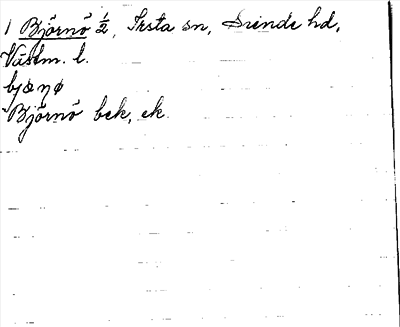 1 Björnö ½, Irsta sn, Siende hd,
Västm. l.
bjœŋø
Björnö bek, ek.